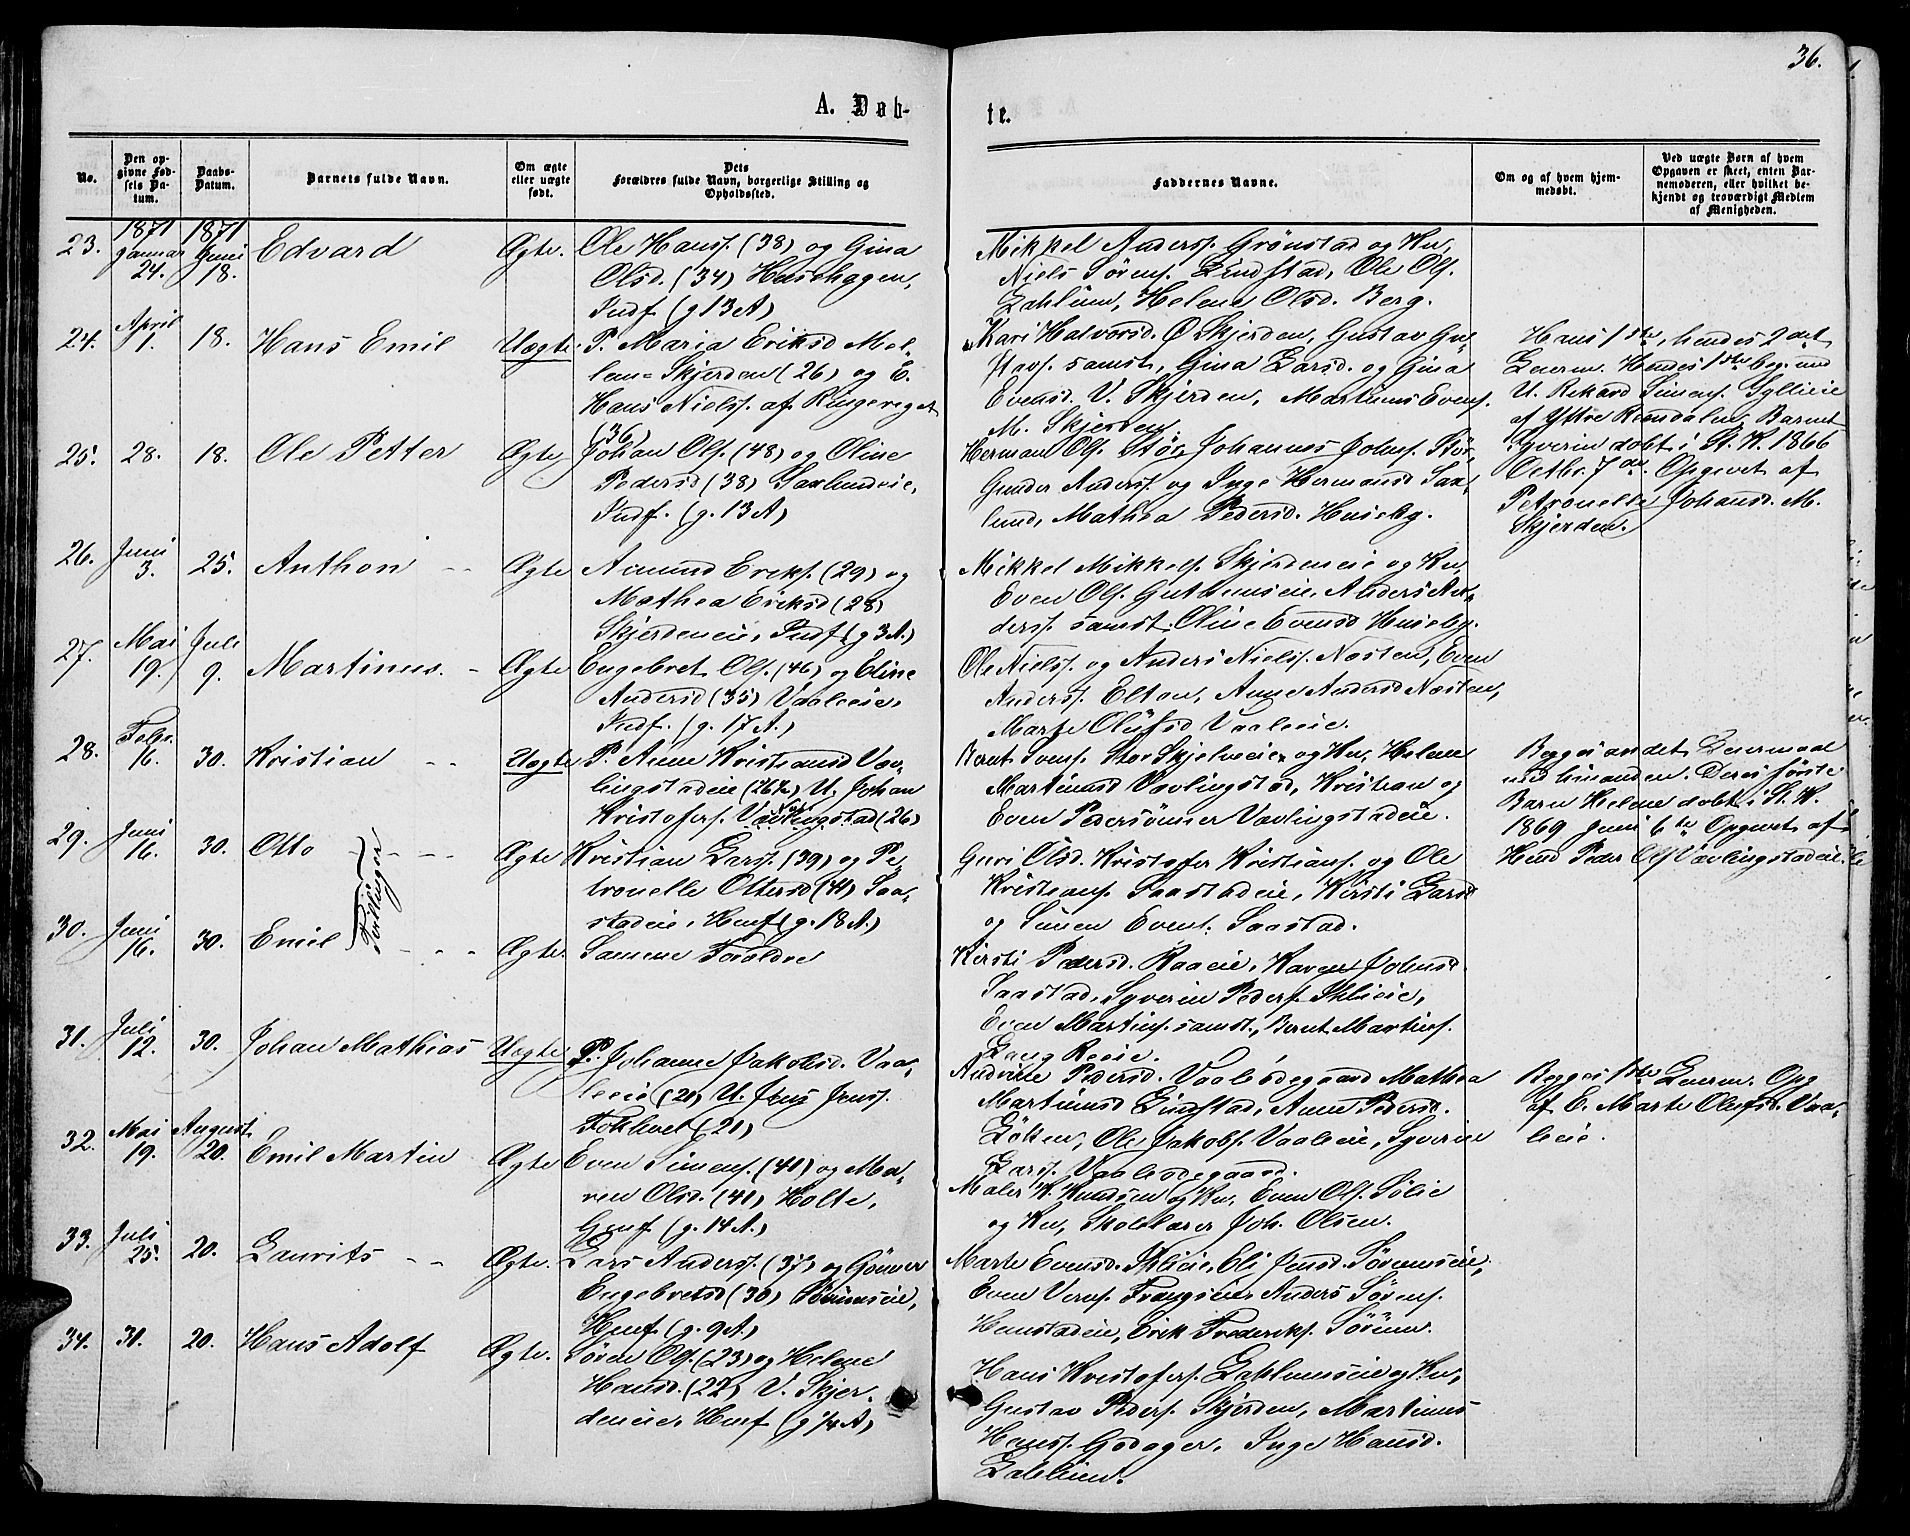 36.
A. Døb-
te.
No.
Den op-
givne Fød-
sels Da-
tum.
Daabs-
Datum.
Barnets fulde Navn.
Om ægte
eller uægte
født.
Dets
Forældres fulde Navn, borgerlige Stilling og
Opholdssted.
Faddernes Navne.
Om og af hvem hjem-
medøbt.
Ved uægte Børn af hvem
Opgaven er skeet, enten Bar-
nemoderen, eller hvilket be-
kjendt og troværdigt Medlem
af Menigheden.
1871
1871
23. Januar 24. Juni 18. Edvard Ægte. Ole Hanss. (38) og Gina
Olsd. (34) Husehagen,
Indf. (g 13 A)
Mikkel Anderss. Grönstad og Kn,
Niels Sörens. Lindstad, Ole Ols.
Zahlinn, Helene Olsd. Berg.
24. April 1. 18. Hans Emil Uægte. P. Maria Eriksd Mel-
lem-Skjerden (26) og E.
Hans Nielss. af Ringeriget
(36)
Kari Halvorsd. Ö Skjerden, Gustav Gu-
stavs. samst, Gina Larsd. og Gina
Evensd. V. Skjerden, Martinus Evens.
M. Skjerden.
Hans 1ste, hendes 2det
Leierm. Hendes 1ste beg. med
U. Rikard Simens. Gylleie
af Yttre Rendalen, Barnet
Syverin döbt i St. K. 1866
Octbr. 7de. Opgevet af
Petronelle Johansd. M.
Skjerden.
25. 28. 18. Ole Petter Ægte Johan Ols. (48) og Oline
Pedersd (38) Saxlundeie,
Indf. (g. 13 A)
Herman Ols. Stör, Johannes Johns. Stör,
Gunder Anderss og Inge Hermansd Sax-
lund, Mathea Pedersd. Huseby.
26. Juni 3. 25. Anthon Ægte Amund Eriks. (29) og
Mathea Eriksd (28)
Skjerdeneie, Indf. (g 3 A)
Mikkel Mikkels. Skjerdeneie og Kn,
Even Ols. Guthumseie, Anders An-
derss. samst. Oline Evensd Huseby.
27. Mai 19. Juli 9. Martinus. Ægte Engebret Ols. (46) og Eline
Andersd (35) Vaaleeie,
Indf. (g. 17 A.)
Ole Nielss. og Anders Nielss. Næsten, Even
Anderss. Elton, Anne Andersd Næsten,
Marte Olufsd Vaaleeie.
28. Febr. 16. 30. Kristian Uægte P. Anne Kristiansd Vav-
lingstadeie (26½) U. Johan
Kristofers. Vavlingstad (26)
Bernt Svens. Stor Skjelneie og Kn, Helene
Martinusd Vavlingstad, Kristian og
Even Pedersönner Vavlingstadeie.
Begges andet Leiermaal
med hinanden. Deres förste
Barn Helene döbt i St. K.
1869 Juni 6te Opgevet af
Hmd Peder Ols Vavlingstadeie
29. Juni 16. 30. Otto Ægte Kristian Larss. (39) og Pe-
tronelle Ottersd (41) Saa-
stadeie, Hmf. (g. 18 A)
Guri Olsd. Kristofer Kristians. og Ole
Kristians. Saastadeie, Kirsti Larsd
og Simen Evens. Saastad.
Tvillinger
30. Juni 16. 30. Emil Ægte. Samme Forældre
Kirsti Pedersd. Raaeie, Karen Johnsd
Saastad, Syverin Peders. Sklieie,
Even Martins. samst., Bernt Martins.
Lang Reeie.
31. Juli 12. 30. Johan Mathias Uægte P. Johanne Jakobsd. Vaa-
leeie (20) U. Jens Jenss.
Foklevet (21)
Andrine Pedersd. Vaalesödegaard Mathea
Martinusd Lindstad, Anne Pedersd.
Lötten, Ole Jakobs. Vaaleeie, Syverin
Larss. Vaalesödegaard.
Begges 1ste Leierm. Opg
af E. Marte Olufsd. Vaa-
leeie.
32. Mai 19. August 20. Emil Martin Ægte Even Simens. (40) og Ma-
ren Olsd. (41) Holte,
Gmf (g. 14 A.)
Maler K. Knudsen og Kn, Even Ols. Sölie
og Kn, Skolelærer Joh. Olsen.
33. Juli 25. 20. Laurits Ægte. Lars Anderss. (37) og Gönner
Engebretsd (30) Sörumseie,
Hmf. (g. 9 A)
Marte Evensd. Sklieie, Eli Jensd. Sörumseie,
Even Anders Sörens.
Hemstadeie, Erik Frederiks. Sörum.
34. 31. 20. Hans Adolf Ægte. Sören Ols. (23) og Helene
Hansd. (22) V. Skjer-
deneie, Hmf (g 14 A)
Hans Kristofers. Zahlunseie og Kn,
Gustav Peders. Skjerden, Martinus
Hanss. Godager, Inge Hansd.
Zahlinn.